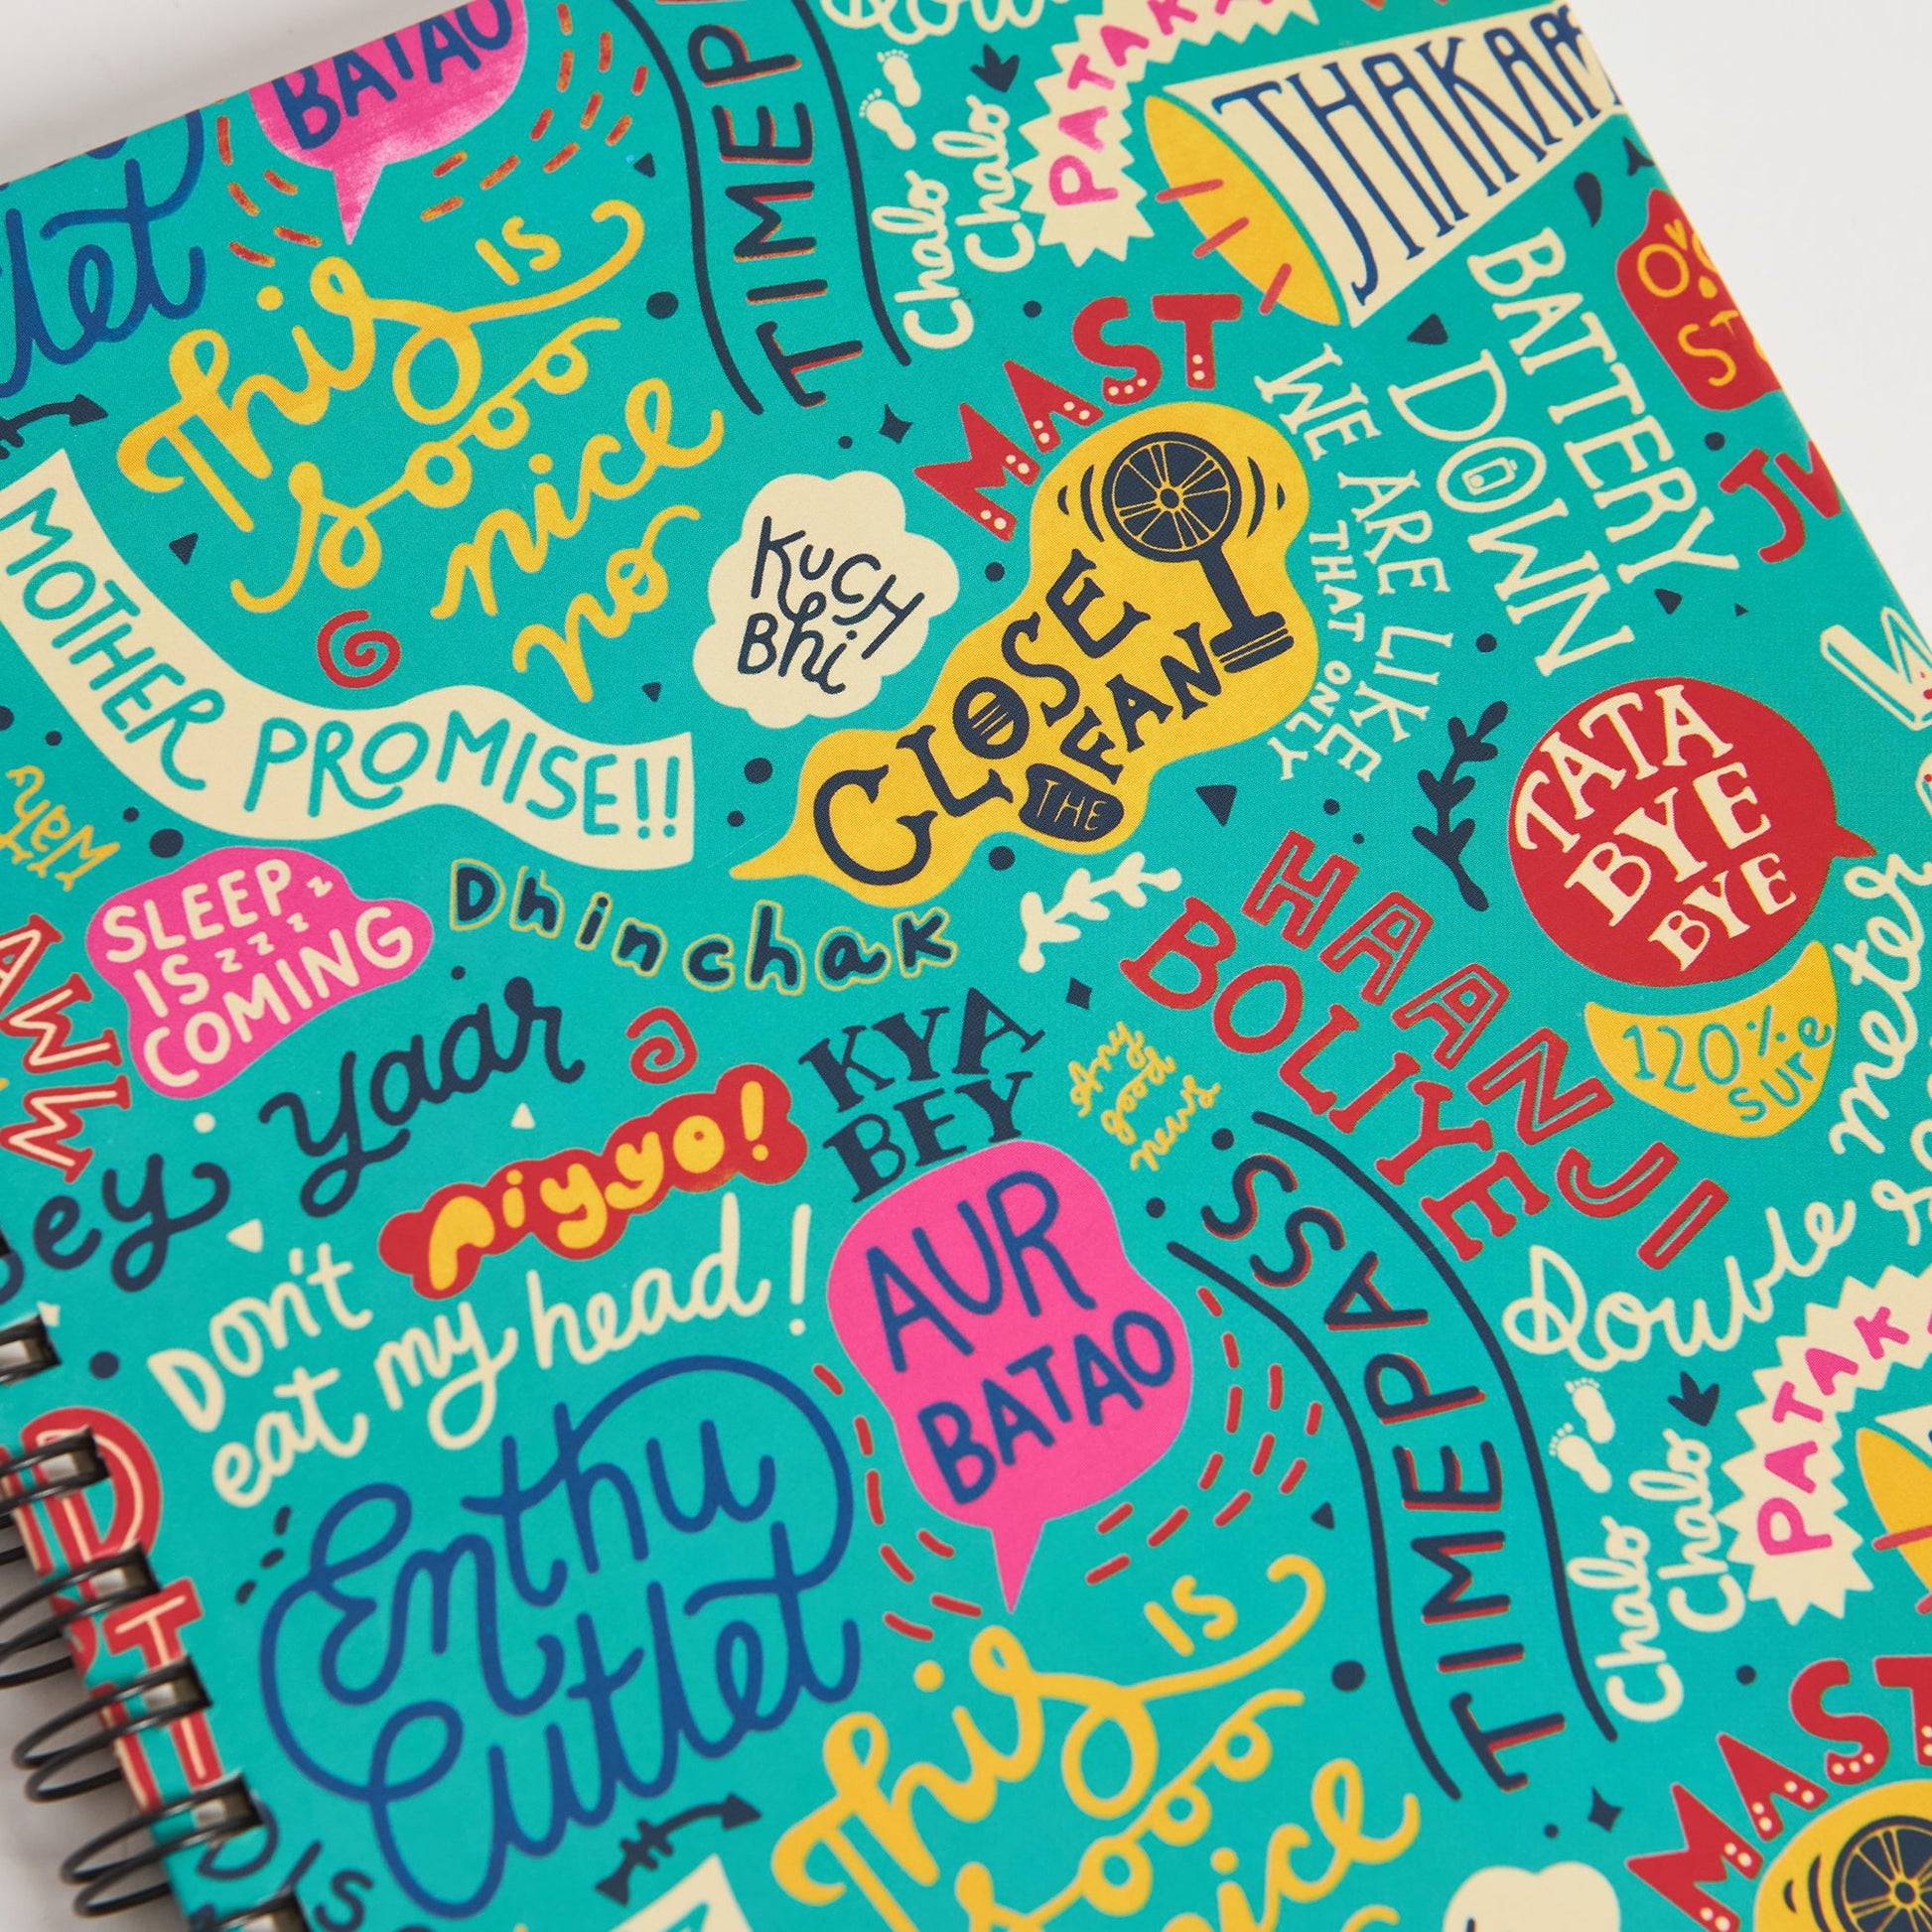 BATAO
TIMEP
Chalo
Chalo
PATAK
This is
sooo
nice
no
MAST
BATTERY
DOWN
WE ARE LIKE
THAT ONLY
MOTHER PROMISE!!
KUCH
Bhi
CLOSE
THE FAN
TATA
BYE
BYE
SLEEP z
IS z z z
COMING
Dhinchak
HAANJI
BOLIYE
120%
sure
meter
yaar
KYA
BEY
Any
good
news
Aiyyo!
Don't
eat my head!
AUR
BATAO
TIMEPASS
Double
Enthu
Cutlet
Chalo
Chalo
PATAK
This is
sooo
MAST